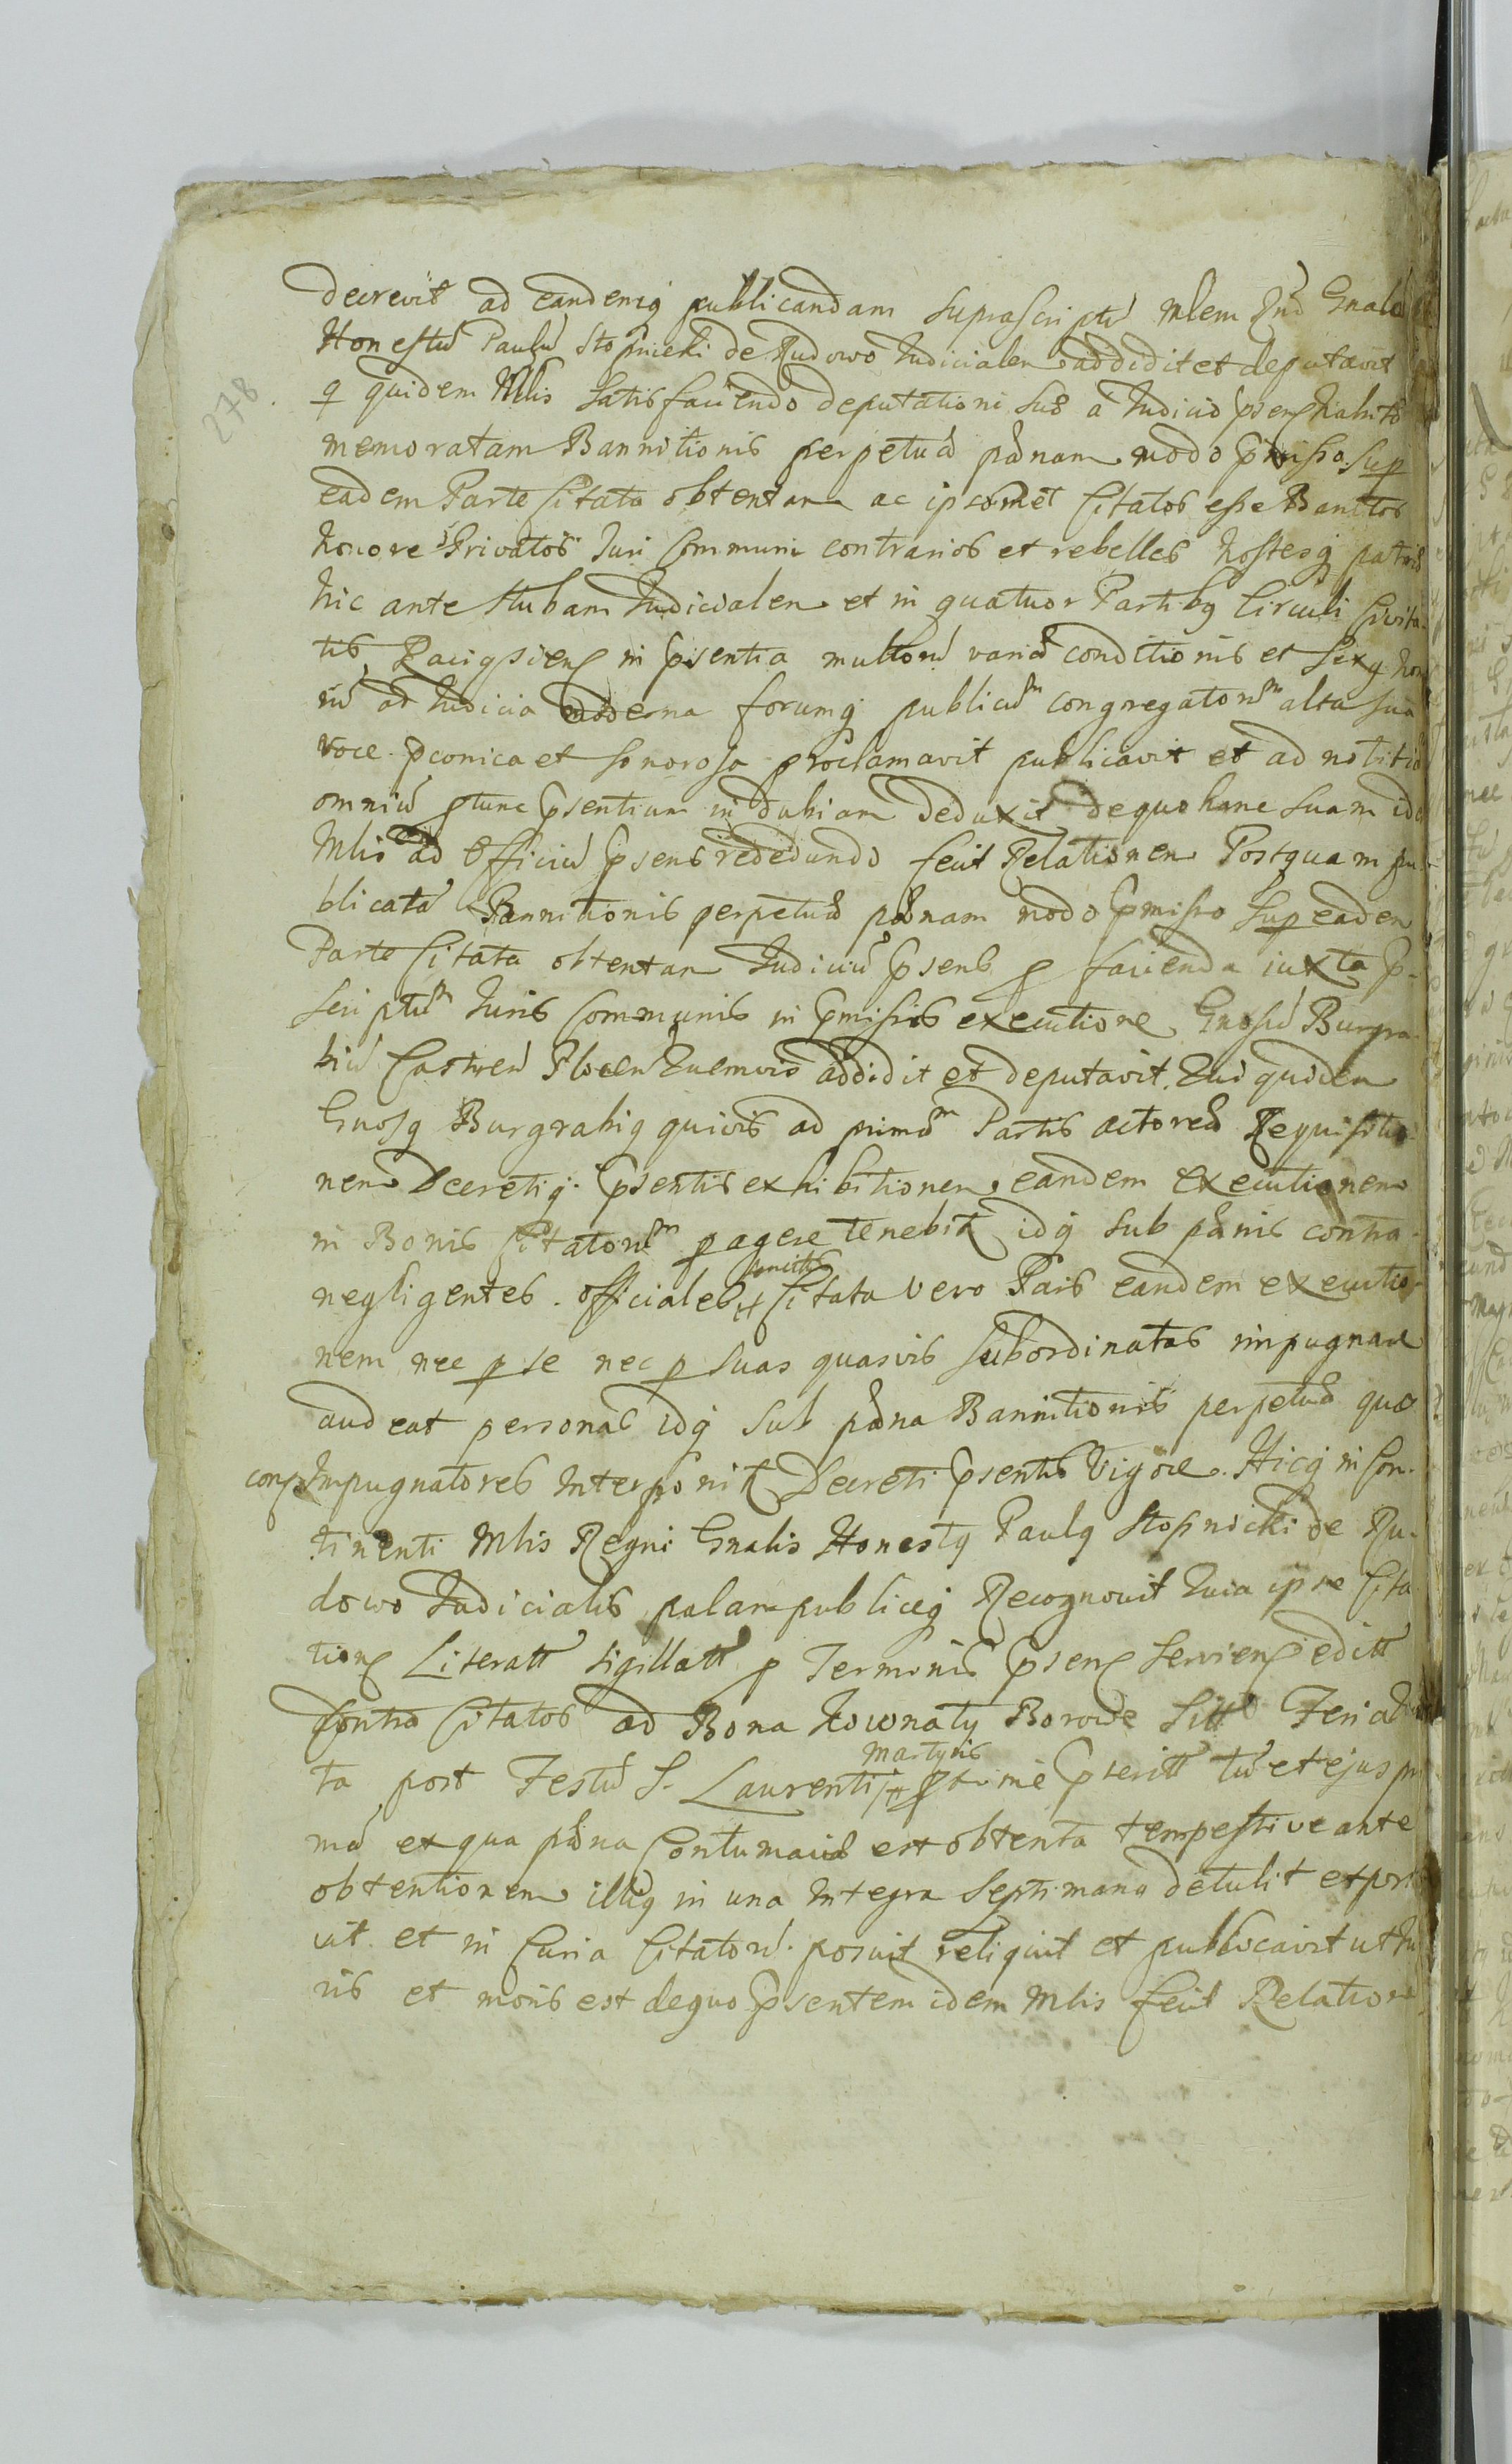 278
decrevit ad eandemq publicandam suprascriptũ mlem Rñd Gnalẽ
Honestũ Paulũ Stopnicki de Rudowo Judicialem addidit et deputavit
q quidem Mlis satisfaciendo deputationi suæ a Judicio psens habitæ
memoratam Bannitionis perpetuæ pænam modo pmisso sup
eadem Parte Citata obtentam ac ipsosmet Citatos esse Banitos
honore Privatos Juri Communi contrarios et rebelles hostesq patriæ
hic ante stubam Judicialem et in quatuor Partibq Circuli Civita-
tis Raciqsiens in psentia multorũ variæ conditionis et sexq hom
nũ ad Judicia moderna forumq publicũm congregatorũm alta sua
voce pconica et sonorosa proclamavit publicavit et ad notitiã
omniũ ptunc psentium indubiam deduxit de quo hanc suam idẽ
Mlis ad Officiũ psens redeundo fecit Relationem Postquam pu-
blicatã Bannitionis perpetuæ pænam modo pmisso sup eadem
Parte Citata obtentam Judiciũ psens p facienda iuxta p-
scriptũm Juris Communis in pmissis executione Gnosũ Burgra-
biũ Castren Plocen Quemvis addidit et deputavit. Qui quidem
Gnosq Burgrabiq quivis ad primãm Partis actoreæ Requisitio-
nem Decretiq psentis exhibitionem eandem Executionem
in Bonis Citatorũm pagere tenebit idq sub pænis contra
negligentes officiales # Citata vero Pars eandem executio-
nem nec p se nec p suas quasvis subordinatas impugnare
audeat personas idq sub pæna Bannitionis perpetuæ quæ
Impugnatores Interponit Decreti psentis Vigore. Hicq in Con-
tinenti Mlis Regni Gnalis Honestq Paulq Stopnicki de Ru-
dowo Judicialis palam publiceq Recognovit Quia ipse Cita
tions Literatt sigillatt p Terminis psens serviens editt
Contra Citatos ad Bona Kownaty Borowe Sitt Feria
ta post Festũ S. Laurenti # Martyris pxime pteritt tũ et ejus pri
mũ ex qua pæna Contumaciæ est obtenta tempestive ante
obtentionem illiq in una Integra Septimana detulit et porta
vit et in Curia Citatorũ posuit reliquit et publicavit ut Ju
ris et moris est de quo psentem idem Mlis fecit Relationẽ